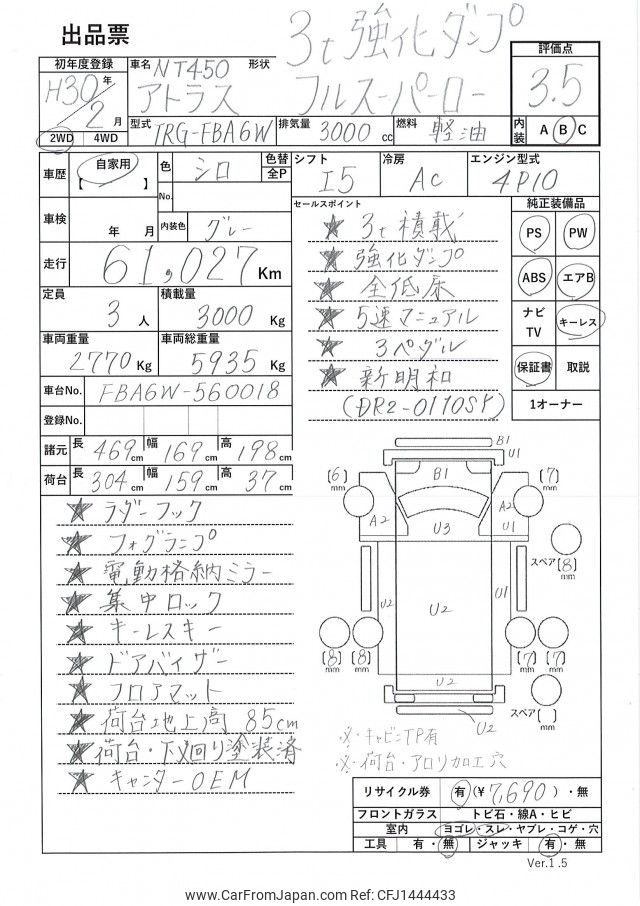 出品票
3t 強化ダンプ
フルスーパーロー
評価点
3.5
内装 A B C
初年度登録
H30年
2月
2WD 4WD
車名 NT450 形状
アトラス
型式 TRG-FBA6W 排気量 3000 cc 燃料 軽油
車歴 自家用
【 】
色 シロ 色替
全P
No.
内装色 グレー
シフト I5 冷房 AC エンジン型式 4P10
車検 年 月
走行 61,027 Km
定員 3 人 積載量 3000 Kg
車両重量 2770 Kg 車両総重量 5935 Kg
車台No. FBA6W-560018
登録No.
諸元 長 469 cm 幅 169 cm 高 198 cm
荷台 長 304 cm 幅 159 cm 高 37 cm
セールスポイント
★ 3t積載
★ 強化ダンプ
★ 全低床
★ 5速マニュアル
★ 3ペダル
★ 新明和
(DR2-0110SK)
純正装備品
PS PW
ABS エアB
ナビ
TV キーレス
保証書 取説
1オーナー
★ ラダーフック
★ フォグランプ
★ 電動格納ミラー
★ 集中ロック
★ キーレスキー
★ ドアバイザー
★ フロアマット
★ 荷台地上高 85cm
★ 荷台・下廻り塗装済
★ キャンターOEM
B1
U1
B1
(6)
mm
(7)
mm
A2 U3 A2 U1
スペア(8)
mm
U2 U2 U1
(8)
mm
(8)
mm
(7)
mm
(7)
mm
U2
スペア( )
mm
U2
※・キャビンTP有
※・荷台・アオリ加工穴
リサイクル券 有(¥7,690)・無
フロントガラス トビ石・線A・ヒビ
室内 ヨゴレ・スレ・ヤブレ・コゲ・穴
工具 有・無 ジャッキ 有・無
Ver.1.5
www.CarFromJapan.com Ref: CFJ1444433